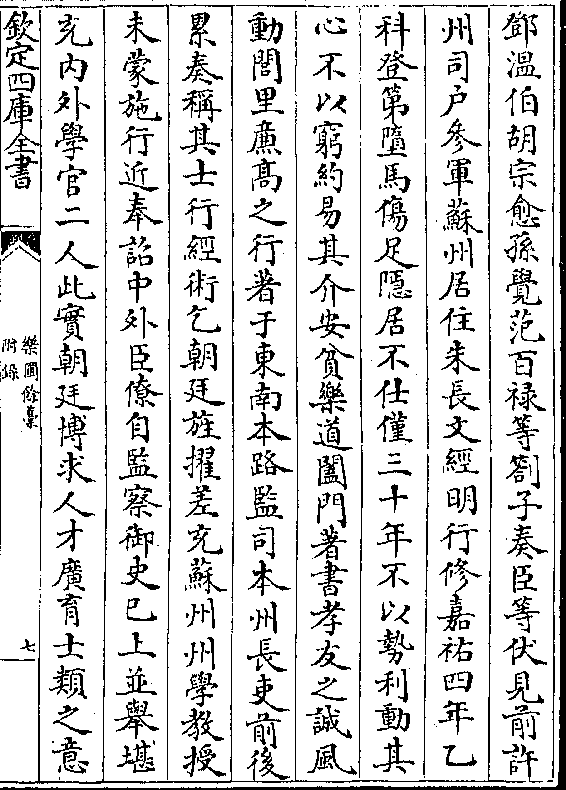 鄧溫伯胡宗愈孫覺范百禄等劄子奏臣等伏見前許
州司户參軍蘇州居住朱長文經明行修嘉祐四年乙
科登第墮馬傷足隱居不仕僅三十年不以勢利動其
心不以窮約易其介安貧樂道闔門著書孝友之誠風
動閭里亷髙之行著于東南本路監司本州長吏前後
累奏稱其士行經術乞朝廷旌擢差充蘇州州學教授
未蒙施行近奉詔中外臣僚自監察御史已上並舉堪
充内外學官二人此實朝廷博求人才廣育士類之意
欽定四庫全書
樂圃餘藁
附錄
七